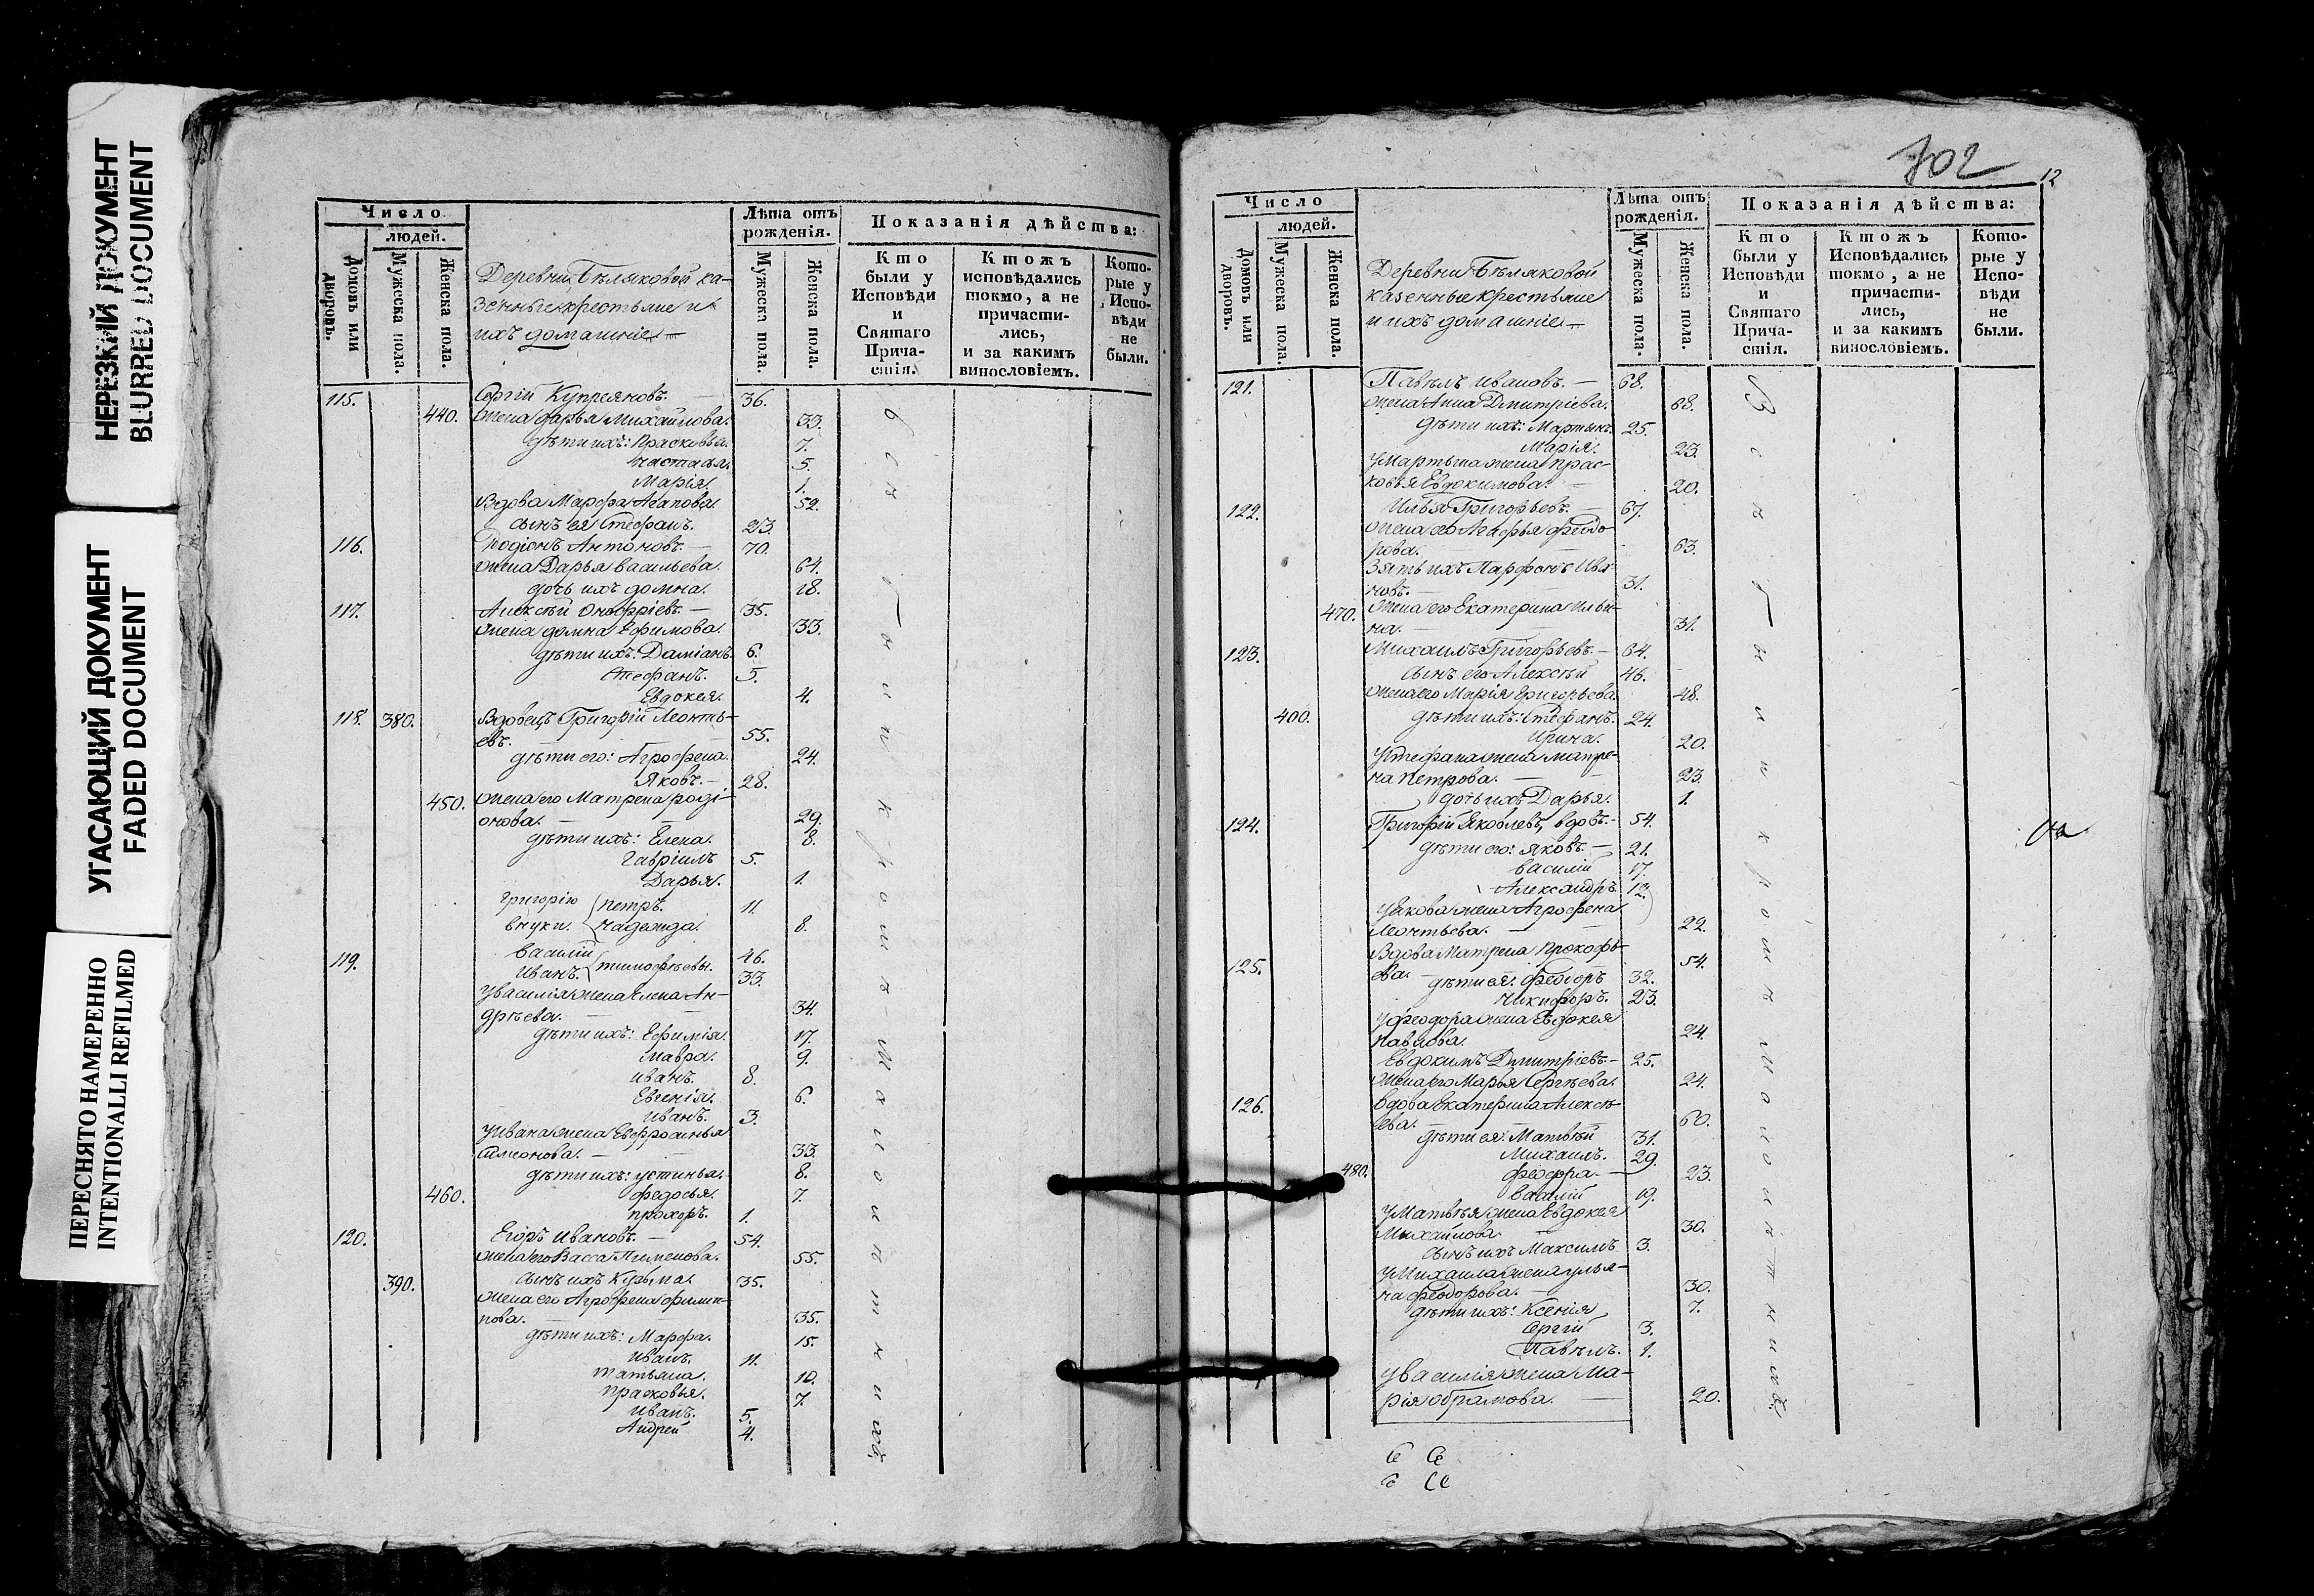 НЕРЕЗКИЙ ДОКУМЕНТ
BLURRED DOCUMENT
УГАСАЮЩИЙ ДОКУМЕНТ
FADED DOCUMENT
ПЕРЕСНЯТО НАМЕРЕННО
INTENTIONALLI REFILMED
Число
людей.
Домовъ или дворовъ.
Мужеска пола.
Женска пола.
Деревни Бѣляковой ка-
зенные крестьяне и
ихъ домашніе
Лѣта отъ рожденія.
Мужеска пола.
Женска пола.
Показанія дѣйства:
Кто были у Исповѣди и Святаго Прича-стія.
Ктожъ исповѣдались токмо, а не причасти-лись, и за какимъ винословіемъ.
Кото-рые у Испо-вѣди не были.
115. Сергій Купреяновъ. 36.
440. Жена Дарья Михайлова. 33.
дѣти ихъ: Прасковья. 7.
Настасья. 5.
Марія. 1.
Вдова Марфа Агапова. 52.
сынъ ея Стефанъ. 23.
116. Родіонъ Антоновъ. 70.
жена Дарья Васильева. 64.
дочь ихъ Домна. 18.
117. Алексѣй Онофріевъ. 35.
Жена Домна Ефимова. 33.
дѣти ихъ: Даміанъ. 6.
Стефанъ. 5.
Евдокея. 4.
118. 380. Вдовецъ Григорій Леонть-
евъ. 55.
дѣти его: Агрофена. 24.
Яковъ. 28.
450. жена его Матрена Роді-
онова. 29.
дѣти ихъ: Елена. 8.
Гавріилъ 5.
Дарья. 1.
Григорію Петръ. 11.
внуки. Надежда. 8.
119. Василій 46.
Иванъ. Тимофѣевы. 33.
У Василія жена Елена Ан-
дрѣева. 34.
дѣти ихъ: Ефимія. 17.
Мавра. 9.
Иванъ. 8.
Евгенія. 6.
Иванъ. 3.
У Ивана жена Евфросинья
Симеонова. 33.
дѣти ихъ: Устинья. 8.
460. Федосья. 7.
Прохоръ. 1.
120. Егоръ Ивановъ. 54.
жена его Васса Пименова. 55.
390. сынъ ихъ Кузьма. 35.
жена его Агрофена Филип-
пова. 35.
дѣти ихъ: Марфа. 15.
Иванъ. 11.
Татьяна. 10.
Прасковья. 7.
Иванъ. 5.
Андрей 4.
702
12
Число
людей.
Домовъ или дворовъ.
Мужеска пола.
Женска пола.
Деревни Бѣляковой
казенные крестьяне
и ихъ домашніе
Лѣта отъ рожденія.
Мужеска пола.
Женска пола.
Показанія дѣйства:
Кто были у Исповѣди и Святаго Прича-стія.
Ктожъ Исповѣдались токмо, а не причасти-лись, и за какимъ винословіемъ.
Кото-рые у Испо-вѣди не были.
121. Павелъ Ивановъ. 68.
жена Анна Дмитріева. 68.
дѣти ихъ: Мартынъ. 25.
Марія. 23.
У Мартына жена Прас-
ковья Евдокимова. 20.
122. Илья Григорьевъ. 67.
жена его Агафья Феодо-
рова. 63.
Зять ихъ Парфенъ Ива-
новъ. 31.
470. Жена его Екатерина Ильи-
на. 31.
123. Михаилъ Григорьевъ. 64.
сынъ его Алексѣй 46.
жена его Марія Григорьева 48.
400. дѣти ихъ: Стефанъ. 24.
Ирина. 20.
У Стефана жена Матре-
на Петрова. 23.
дочь ихъ Дарья. 1.
124. Григорій Яковлевъ, вдовъ. 54.
дѣти его: Яковъ. 21.
Василій 17.
Александръ 12.
У Якова жена Агрофена
Леонтьева. 22.
125. Вдова Матрена Прокофь-
ева. 54.
дѣти ея: Феодоръ 32.
Никифоръ. 23.
У Феодора жена Евдокея
Павлова. 24.
Евдокимъ Димитріевъ. 25.
Жена его Марья Сергѣева. 24.
126. Вдова Екатерина Алексѣ-
ева. 60.
дѣти ея: Матвѣй 31.
Михаилъ. 29.
480. Феодора. 23.
Василій 19.
У Матвѣя жена Евдокея
Михайлова. 30.
сынъ ихъ Максимъ 3.
У Михаила жена Улья-
на Феодорова. 30.
дѣти ихъ: Ксенія 7.
Сергій 3.
Павелъ. 1.
У Василія жена Ма-
рія Обрамова. 20.